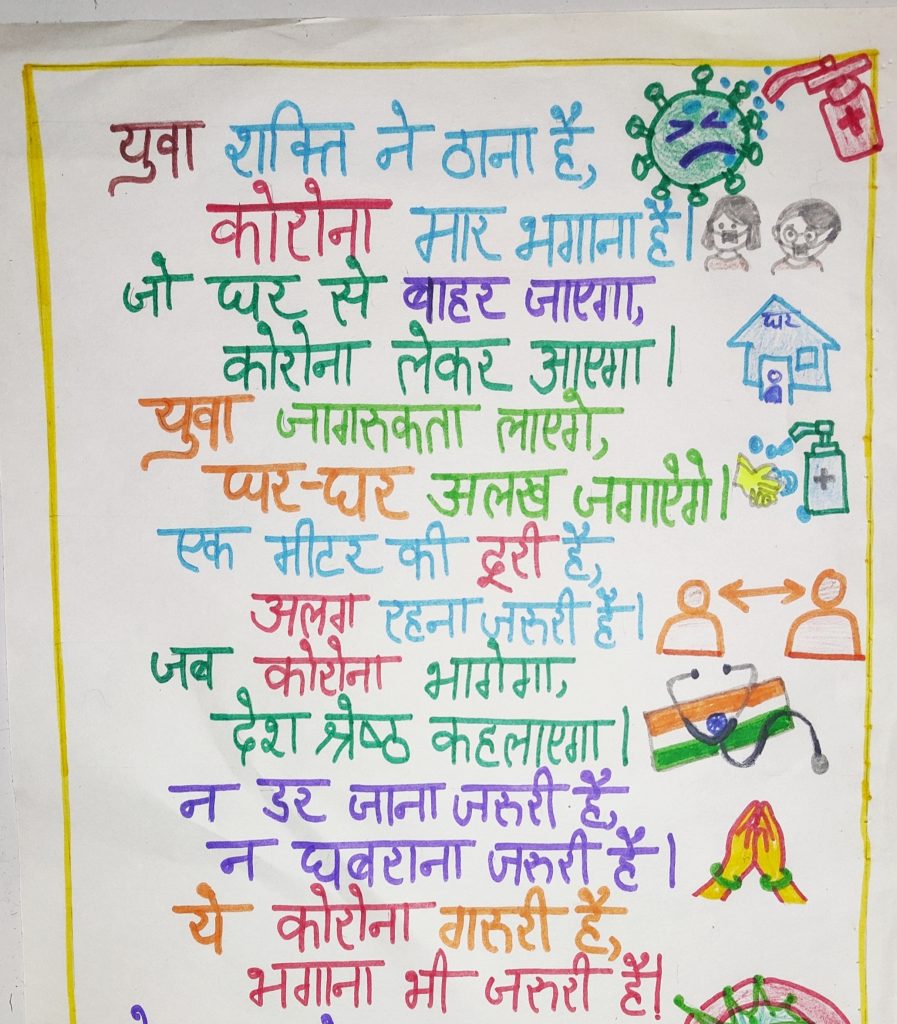 युवा शक्ति ने ठाना है,
कोरोना मार भगाना है।
जो घर से बाहर जाएगा,
कोरोना लेकर आएगा।
घर
युवा जागरुकता लाएगे,
घर-घर अलख जगाऐगे।
एक मीटर की दूरी है,
अलग रहना जरुरी है।
जब कोरोना भागेगा,
देश श्रेष्ठ कहलाएगा।
न डर जाना जरुरी है,
न घबराना जरुरी है।
ये कोरोना गरुरी है,
भगाना भी जरुरी है!